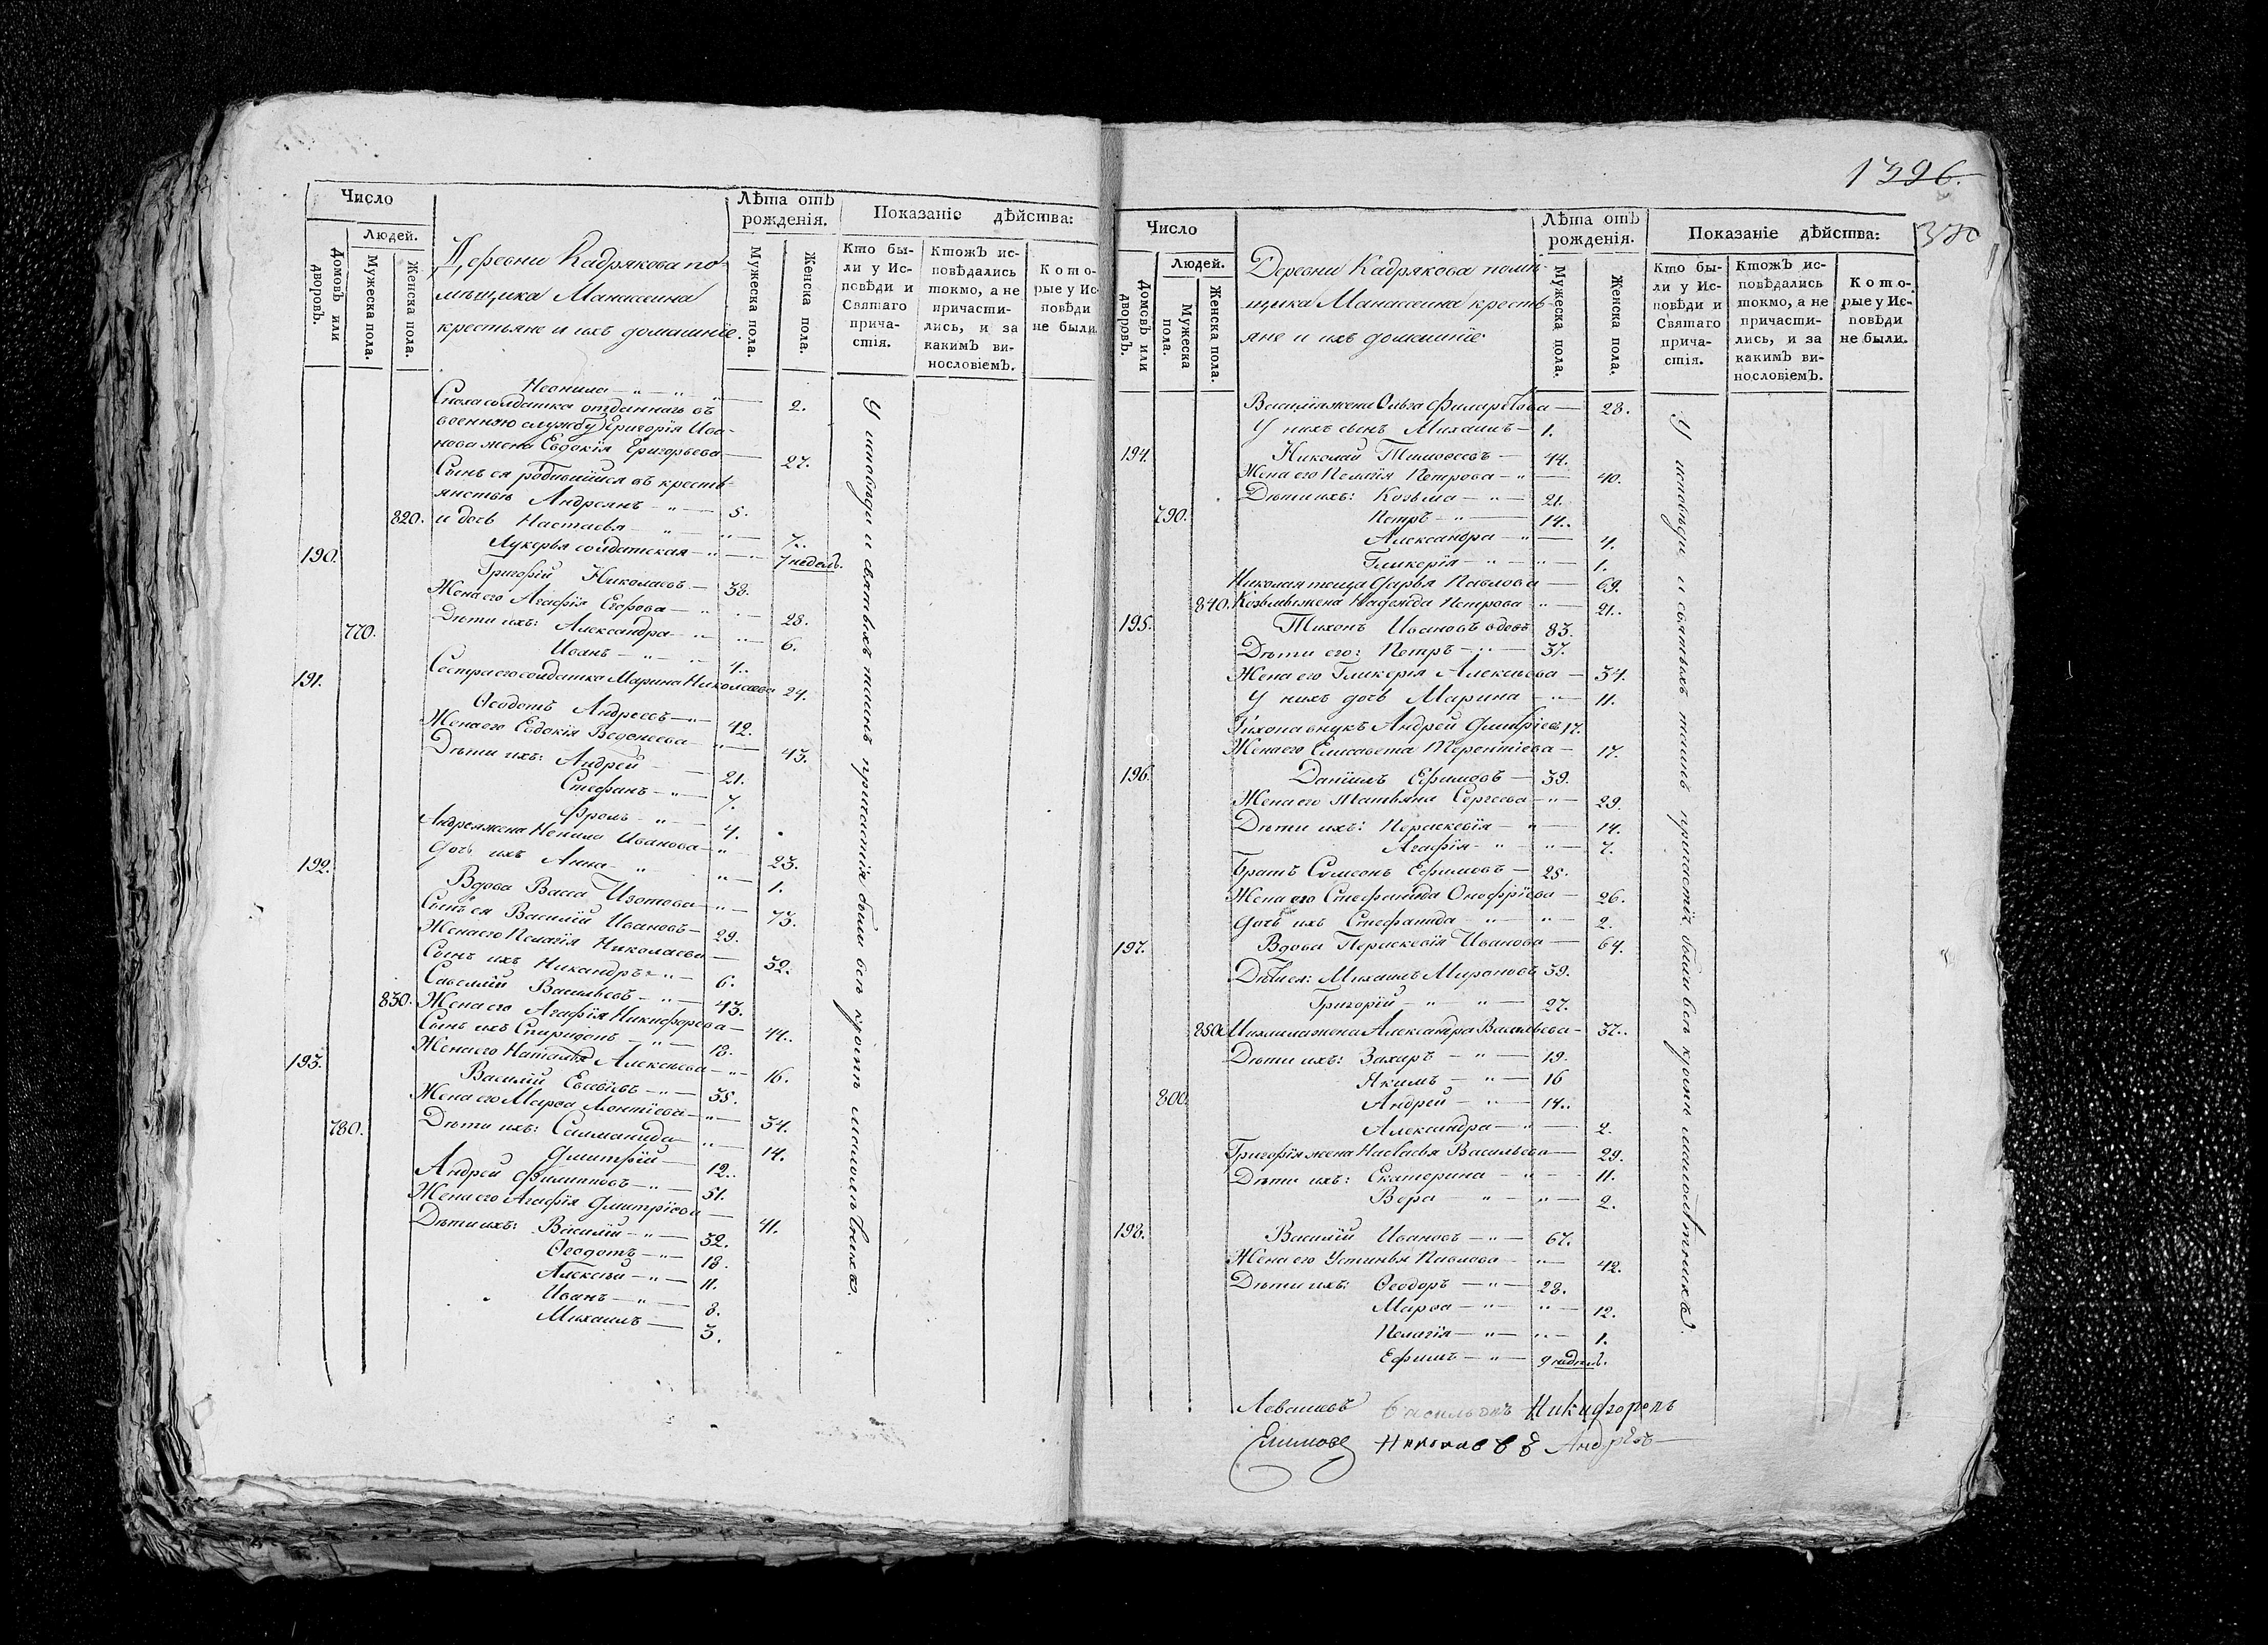 Число
Людей.
Домовъ или дворовъ.
Мужеска пола.
Женска пола.
Деревни Кадрякова по-
мѣщика Манассеина
крестьяне и ихъ домашніе.
Лѣта отъ рожденія.
Мужеска пола.
Женска пола.
Показаніе дѣйства:
Кто бы-
ли у Ис-
повѣди и
Святаго
прича-
стія.
Ктожъ ис-
повѣдались
токмо, а не
причасти-
лись, и за
какимъ ви-
нословіемъ.
Кото-
рые у Ис-
повѣди
не были.
Неонила — 2.
Сноха солдатка отданнаго въ
военную службу Григорія Ива-
нова жена Евдокія Григорьева — 27.
Сынъ ея родившійся въ кресть-
янствѣ Андреянъ — 5.
820. и дочь Настасья — 7.
Лукерья солдатская — 7 недель.
190. Григорій Николаевъ — 38.
Жена его Агафія Егорова — 28.
Дѣти ихъ: Александра — 6.
770. Иванъ — 4.
Сестра его солдатка Марина Николаева 24.
191. Ѳеодотъ Андреевъ — 42.
Жена его Евдокія Веденеева — 43.
Дѣти ихъ: Андрей — 21.
Стефанъ — 7.
Фролъ — 4.
Андрея жена Ненила Иванова — 23.
Дочь ихъ Анна — 1.
192. Вдова Васса Изотова — 73.
Сынъ ея Василій Ивановъ — 29.
Жена его Пелагія Николаева — 32.
Сынъ ихъ Никандръ — 6.
Савелій Васильевъ — 43.
830. Жена его Агафія Никифорова — 44.
Сынъ ихъ Спиридонъ — 18.
Жена его Наталья Алексѣева — 16.
193. Василій Евсѣевъ — 35.
Жена его Марѳа Леонтіева — 34.
Дѣти ихъ: Салманида — 14.
780. Дмитрій — 12.
Андрей Филиповъ — 51.
Жена его Агафія Дмитріева — 41.
Дѣти ихъ: Василій — 32.
Ѳеодотъ — 18.
Алексѣй — 11.
Иванъ — 8.
Михаилъ — 3.
У исповѣди и святыхъ таинъ причастія были всѣ кромѣ малолѣтныхъ.
1396.
Число
Людей.
Домовъ или дворовъ.
Мужеска пола.
Женска пола.
Деревни Кадрякова помѣ-
щика Манассеина кресть-
яне и ихъ домашніе
Лѣта отъ рожденія.
Мужеска пола.
Женска пола.
Показаніе дѣйства:
Кто бы-
ли у Ис-
повѣди и
Святаго
прича-
стія.
Ктожъ ис-
повѣдались
токмо, а не
причасти-
лись, и за
какимъ ви-
нословіемъ.
Кото-
рые у Ис-
повѣди
не были.
Василія жена Ольга Филаретова — 28.
У нихъ сынъ Михаилъ — 1.
194. Николай Тимоѳеевъ — 44.
Жена его Пелагія Петрова — 40.
Дѣти ихъ: Козьма — 21.
790. Петръ — 14.
Александра — 4.
Гликерія — 1.
Николая теща Дарья Павлова — 69.
840. Козьмы жена Надежда Петрова — 21.
195. Тихонъ Ивановъ вдовъ 83.
Дѣти его: Петръ — 37.
Жена его Гликерія Алексѣева — 34.
У нихъ дочь Марина — 11.
Тихона внукъ Андрей Дмитріевъ 17.
Жена его Елисавета Терентіева — 17.
196. Даніилъ Ефимовъ — 39.
Жена его Татьяна Сергеева — 29.
Дѣти ихъ: Параскевія — 14.
Агафія — 7.
Братъ Симеонъ Ефимовъ — 25.
Жена его Стефанида Онофріева — 26.
Дочь ихъ Стефанида — 2.
197. Вдова Параскевія Иванова — 64.
Дѣти ея: Михаилъ Мироновъ 39.
Григорій — 27.
850. Михаила жена Александра Васильева — 37.
Дѣти ихъ: Захаръ — 19.
Якимъ — 16
800. Андрей — 14.
Александра — 2.
Григорія жена Настасья Васильева — 29.
Дѣти ихъ: Екатерина — 11.
Вера — 2.
198. Василій Ивановъ — 67.
Жена его Устинья Павлова — 42.
Дѣти ихъ: Ѳеодоръ — 28.
Марѳа — 12.
Пелагія — 1.
Ефимъ — 9 недѣль.
У исповѣди и святыхъ таинъ причастія были всѣ кромѣ малолѣтныхъ.
Левашовъ Никифоровъ
Николаевъ Андрѣевъ